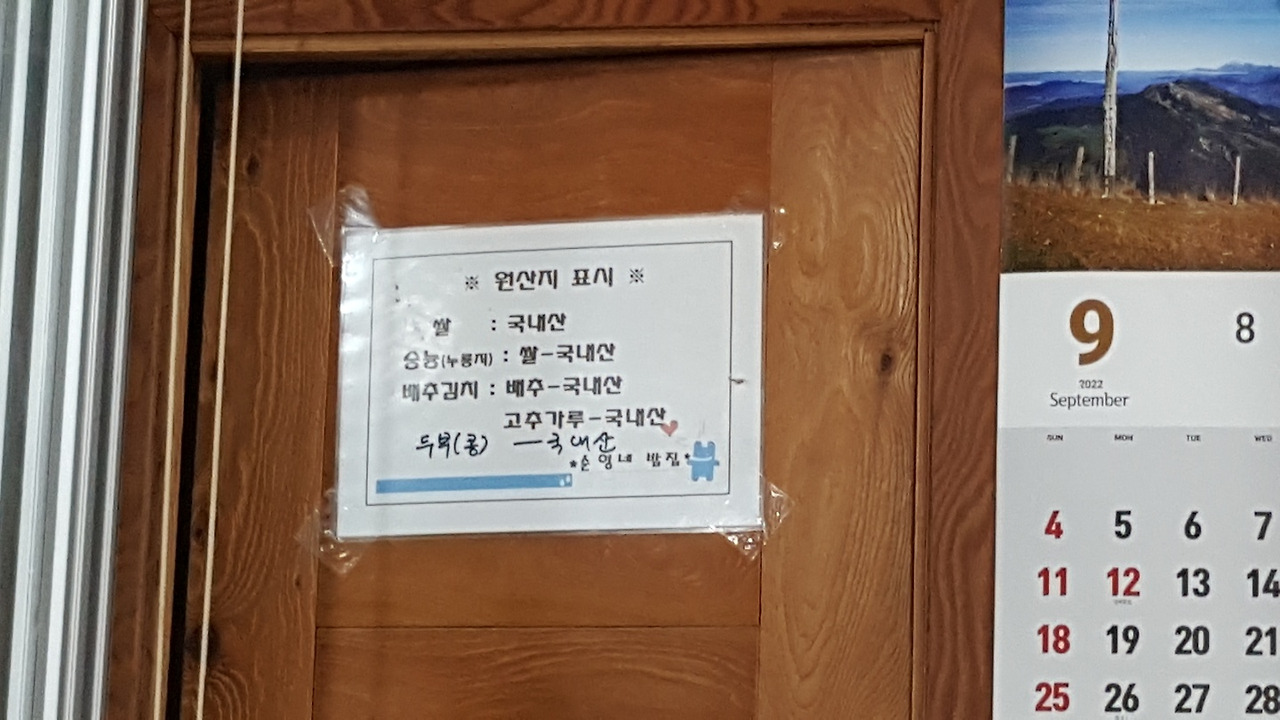 ※ 원산지 표시 ※
쌀 : 국내산
숭늉(누룽지) : 쌀-국내산
배추김치 : 배추-국내산
고추가루-국내산
두부(콩) -국내산
*순영네 밥집*
9 8
2022
September
SUN MON TUE WED
4 5 6 7
11 12 13 14
18 19 20 21
25 26 27 28